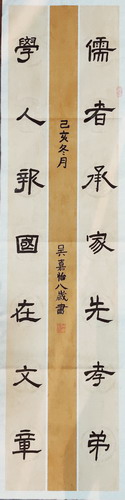 儒者承家先孝弟
學人報國在文章
己亥冬月
吴嘉怡八歲書